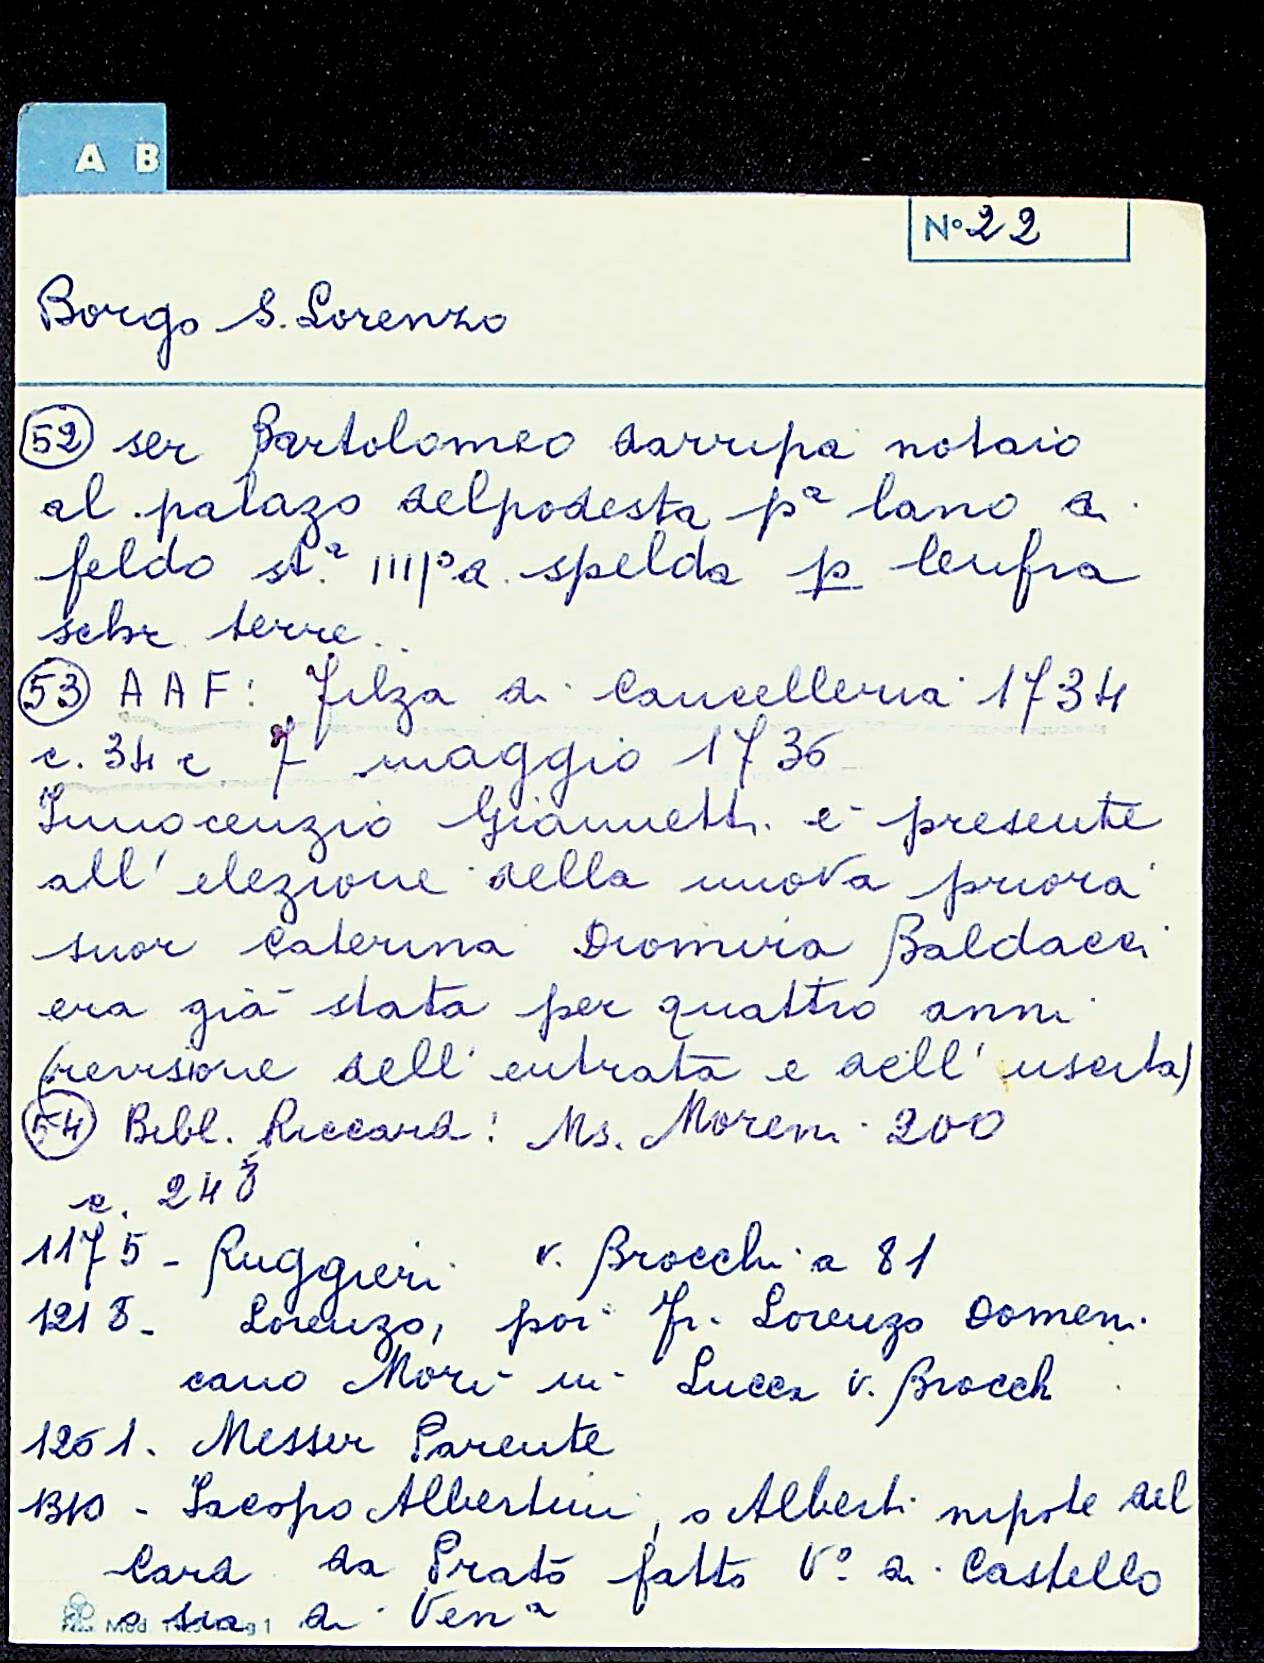 A B
N° 22
Borgo S. Lorenzo
52 ser Bartolomeo darripa notaio
al palazo delpodesta pa lano di
feldo st.a IIIIoa spelda p
terre
53 AAF: Filza di Cancelleria 1734
c. 34 e 7 maggio 1736
Innocenzio Giannetti è presente
all' elezione della nuova priora
suor Caterina Diomira Baldacci
era già stata per quattro anni
(revisione dell' entrata e dell' uscita)
54 Bibl. Riccard: Ms. Moreni 200
c. 248
1175 - Ruggieri v. Brocchi a 81
1218 - Lorenzo, poi Fr. Lorenzo Domeni
cano Morì in Lucca v. Brocch
1251. Messer Parente
- Iacopo Albertini, o Alberti nipote del
Card da Prato fatto Vo. di Castello
o sia di Vena
Mod.